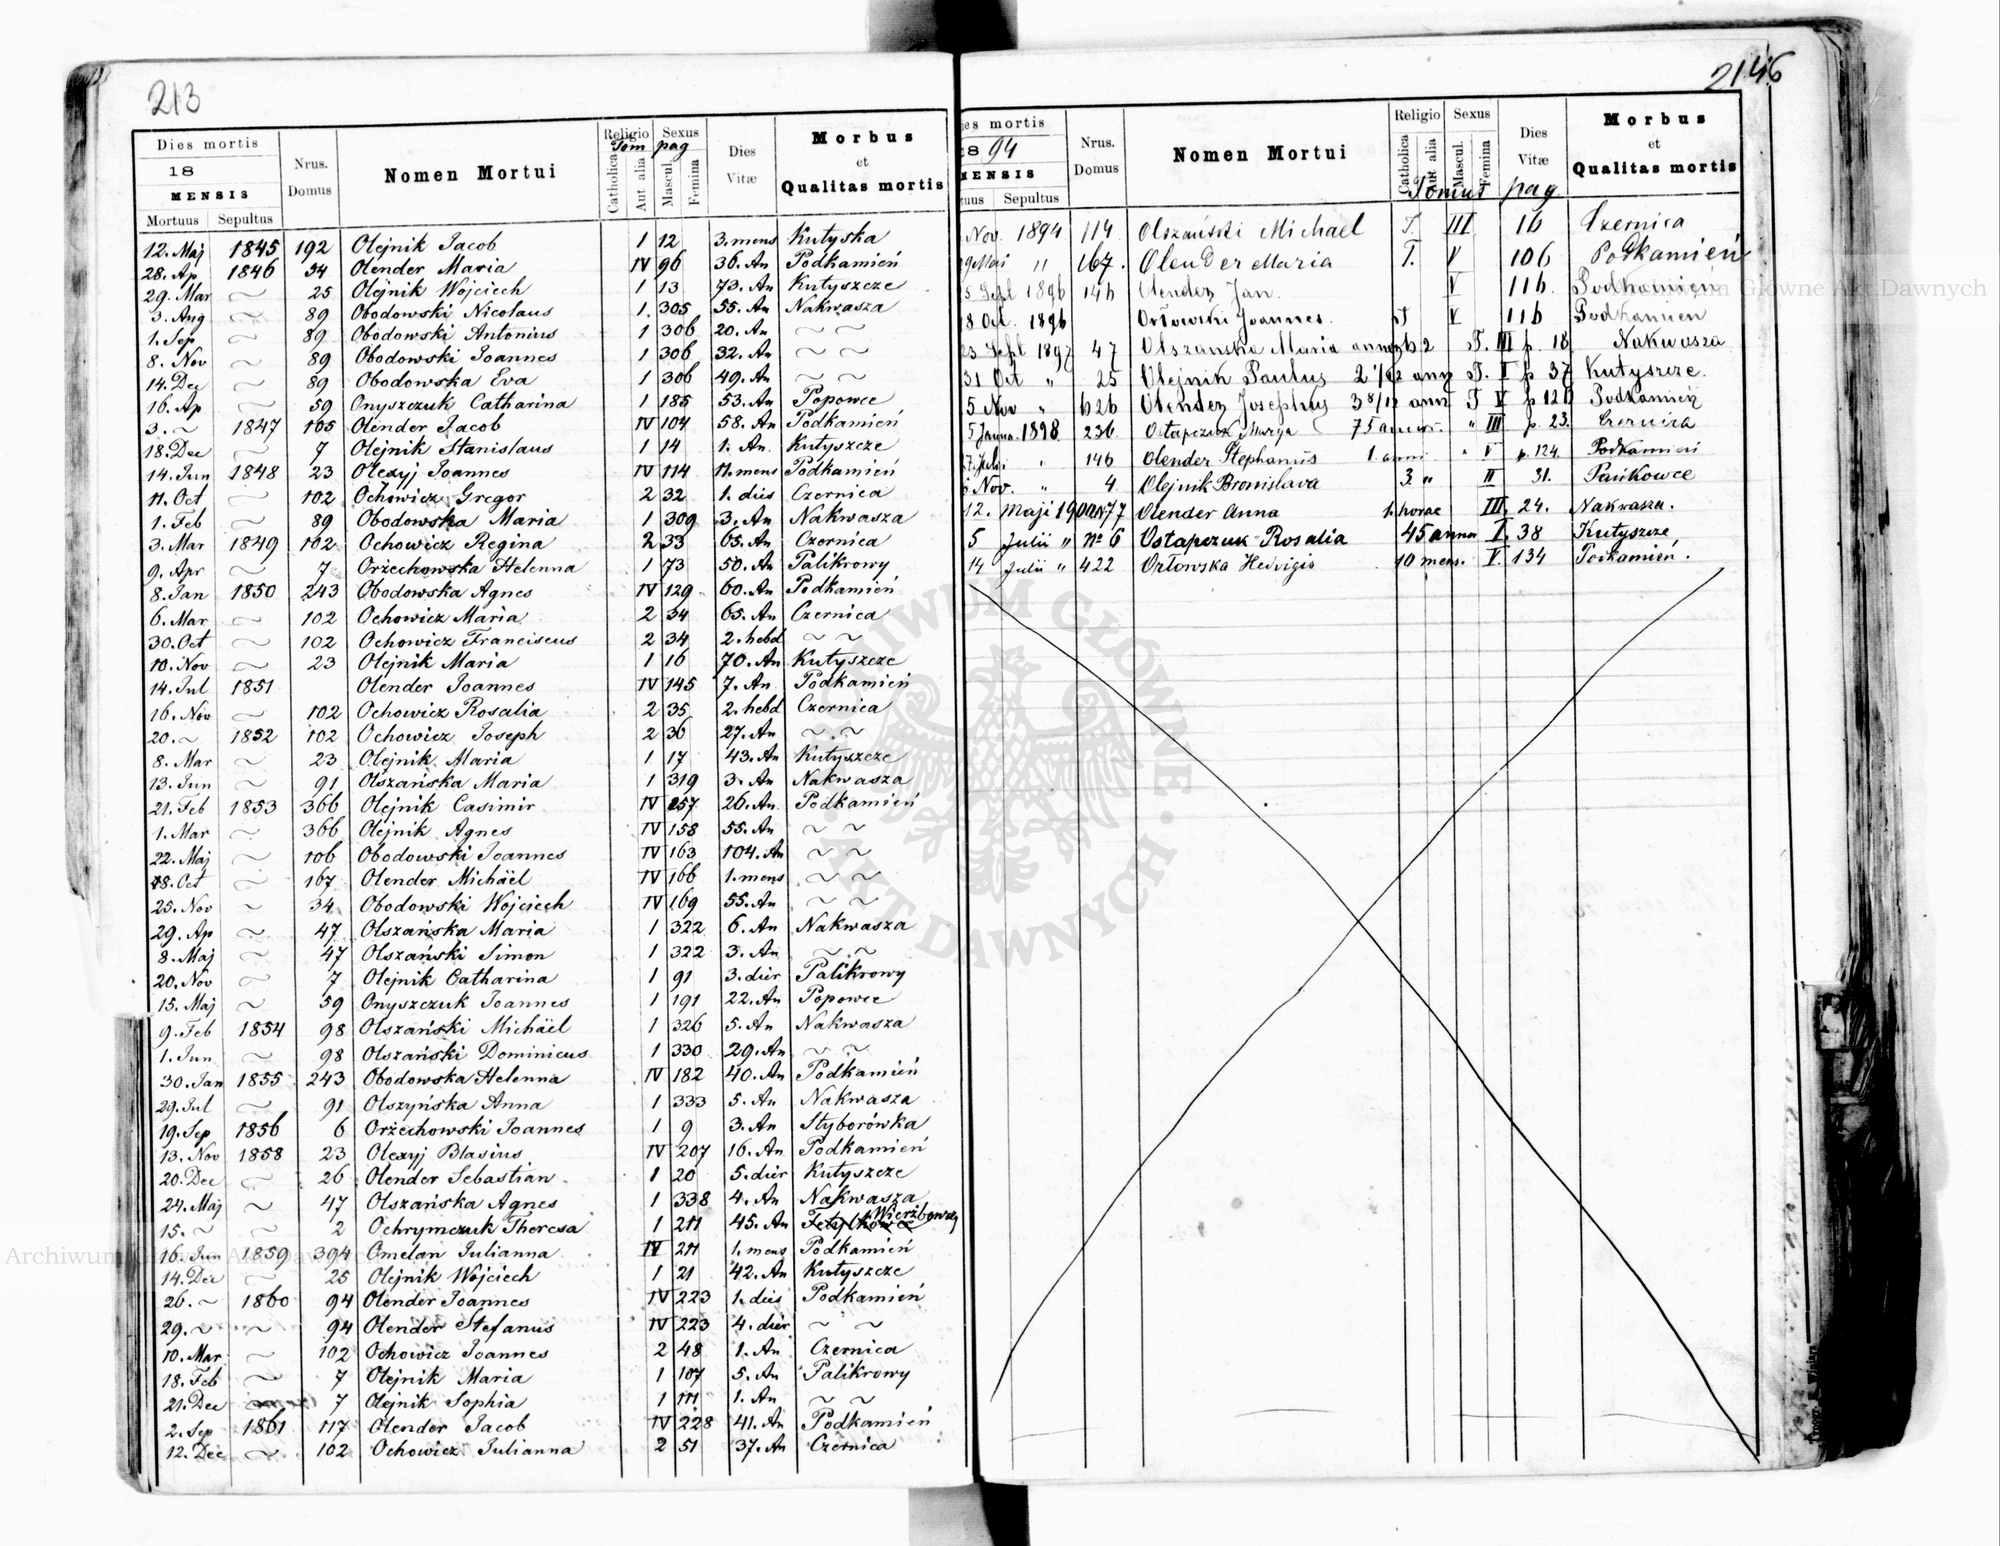 213
Dies mortis
18
MENSIS
Mortuus Sepultus
Nrus. Domus
Nomen Mortui
Religio
Catholica
Aut alia
Sexus
Mascul.
Femina
Tom pag
Dies Vitæ
Morbus
et
Qualitas mortis
12. Maj 1845 192 Olejnik Jacob 1 12 3. mens Kutyska
28. Ap 1846 34 Olender Maria IV 96 36. An Podkamień
29. Mar ~ 25 Olejnik Wojciech 1 13 73. An Kutyszcze
3. Aug ~ 89 Obodowski Nicolaus 1 305 55. An Nakwasza
1. Sep ~ 89 Obodowski Antonius 1 306 20. An ~ ~
8. Nov ~ 89 Obodowski Joannes 1 306 32. An ~ ~
14. Dec ~ 89 Obodowska Eva 1 306 49. An ~ ~
16. Ap ~ 59 Onyszczuk Catharina 1 185 53. An Popowce
3. ~ 1847 105 Olender Jacob IV 104 58. An Podkamień
18. Dec ~ 7 Olejnik Stanislaus 1 14 1. An Kutyszcze
14. Jun 1848 23 Olexyj Joannes IV 114 11. mens Podkamień
11. Oct ~ 102 Ochowicz Gregor 2 32 1. dies Czernica
1. Feb ~ 89 Obodowska Maria 1 309 3. An Nakwasza
3. Mar 1849 102 Ochowicz Regina 2 33 65. An Czernica
9. Apr ~ 7 Orżechowska Helenna 1 73 50. An Palikrowy
8. Jan 1850 243 Obodowska Agnes IV 129 60. An Podkamień
6. Mar ~ 102 Ochowicz Maria 2 34 65. An Czernica
30. Oct ~ 102 Ochowicz Franciscus 2 34 2. hebd ~ ~
10. Nov ~ 23 Olejnik Maria 1 16 70. An Kutyszcze
14. Jul 1851 Olender Joannes IV 145 7. An Podkamień
16. Nov ~ 102 Ochowicz Rosalia 2 35 2. hebd Czernica
20. ~ 1852 102 Ochowicz Joseph 2 36 27. An ~ ~
8. Mar ~ 23 Olejnik Maria 1 17 43. An Kutyszcze
13. Jun ~ 91 Olszańska Maria 1 319 3. An Nakwasza
21. Feb 1853 366 Olejnik Casimir IV 257 26. An Podkamień
1. Mar ~ 366 Olejnik Agnes IV 158 55. An ~ ~
22. Maj ~ 106 Obodowski Joannes IV 163 104. An ~ ~
18. Oct ~ 167 Olender Michäel IV 166 1. mens ~ ~
25. Nov ~ 34 Obodowski Wojciech IV 169 55. An ~ ~
29. Ap ~ 47 Olszańska Maria 1 322 6. An Nakwasza
8. Maj ~ 47 Olszański Simon 1 322 3. An ~ ~
20. Nov ~ 7 Olejnik Catharina 1 91 3. dier Palikrowy
15. Maj ~ 59 Onyszczuk Joannes 1 191 22. An Popowce
9. Feb 1854 98 Olszański Michäel 1 326 5. An Nakwasza
1. Jun ~ 98 Olszański Dominicus 1 330 29. An ~ ~
30. Jan 1855 243 Obodowska Helenna IV 182 40. An Podkamień
29. Jul ~ 91 Olszyńska Anna 1 333 5. An Nakwasza
19. Sep 1856 6 Orżechowski Joannes 1 9 3. An Styborówka
13. Nov 1858 23 Olexyj Blasius IV 207 16. An Podkamień
20. Dec ~ 26 Olender Sebastian 1 20 5. dier Kutyszcze
24. Maj ~ 47 Olszańska Agnes 1 338 4. An Nakwasza
15. ~ ~ 2 Ochrymczuk Theresa 1 211 45. An Wierżbowzy
16. Jun 1859 394 Omelan Julianna IV 211 1. mens Podkamień
14. Dec ~ 25 Olejnik Wojciech 1 21 42. An Kutyszcze
26. ~ 1860 94 Olender Joannes IV 223 1. dies Podkamień
29. ~ ~ 94 Olender Stefanus IV 223 4. dier ~ ~
10. Mar ~ 102 Ochowicz Joannes 2 48 1. An Czernica
18. Feb ~ 7 Olejnik Maria 1 107 5. An Palikrowy
21. Dec 7 Olejnik Sophia 1 111 1. An ~ ~
2. Sep 1861 117 Olender Jacob IV 228 41. An Podkamień
12. Dec ~ 102 Ochowicz Julianna 2 51 37. An Czernica
2146
ies mortis
18 94
MENSIS
tuus Sepultus
Nrus. Domus
Nomen Mortui
Religio
Catholica
Aut alia
Sexus
Mascul.
Femina
Tomus pag
Dies Vitæ
Morbus
et
Qualitas mortis
Nov. 1894 114 Olszański Michael T. III 16 Czernica
29 Mai " 167. Olender Maria T. V 106 Podkamień
5 Sept 1896 146 Olender Jan. V 116 Podkamień
8 Oct. 1896 Orłowski Joannes. T V 116 Podkamień
23 Sept 1897 47 Olszanska Maria annor 62 T. III p. 18 Nakwasza
31 Oct " 25 Olejnik Paulus 2 1/12 ann T. I p 37 Kutyszcze.
5 Nov " 626 Olender Josephus 3 8/12 ann T V p 121 Podkamień
5 Janua. 1898 236 Ostapczuk Marya 75 annor. " III p. 23. Czernica
7 Julii " 146 Olender Stephanus 1. anni " V p. 124 Podkamień
6 Nov. " 4. Olejnik Bronislava 3. " II 31. Pańkowce
12. Maji 1900 N 77 Olender Anna 1. horae III 24. Nakwasza.
5 Julii " Nº 6 Ostapczuk Rosalia 45 annor I. 38 Kutyszcze
14 Julii " 422 Orłowska Hedvigis 10 mens. V. 134 Podkamień.
ARCHIWUM GŁÓWNE AKT DAWNYCH
Archiwum Główne Akt Dawnych